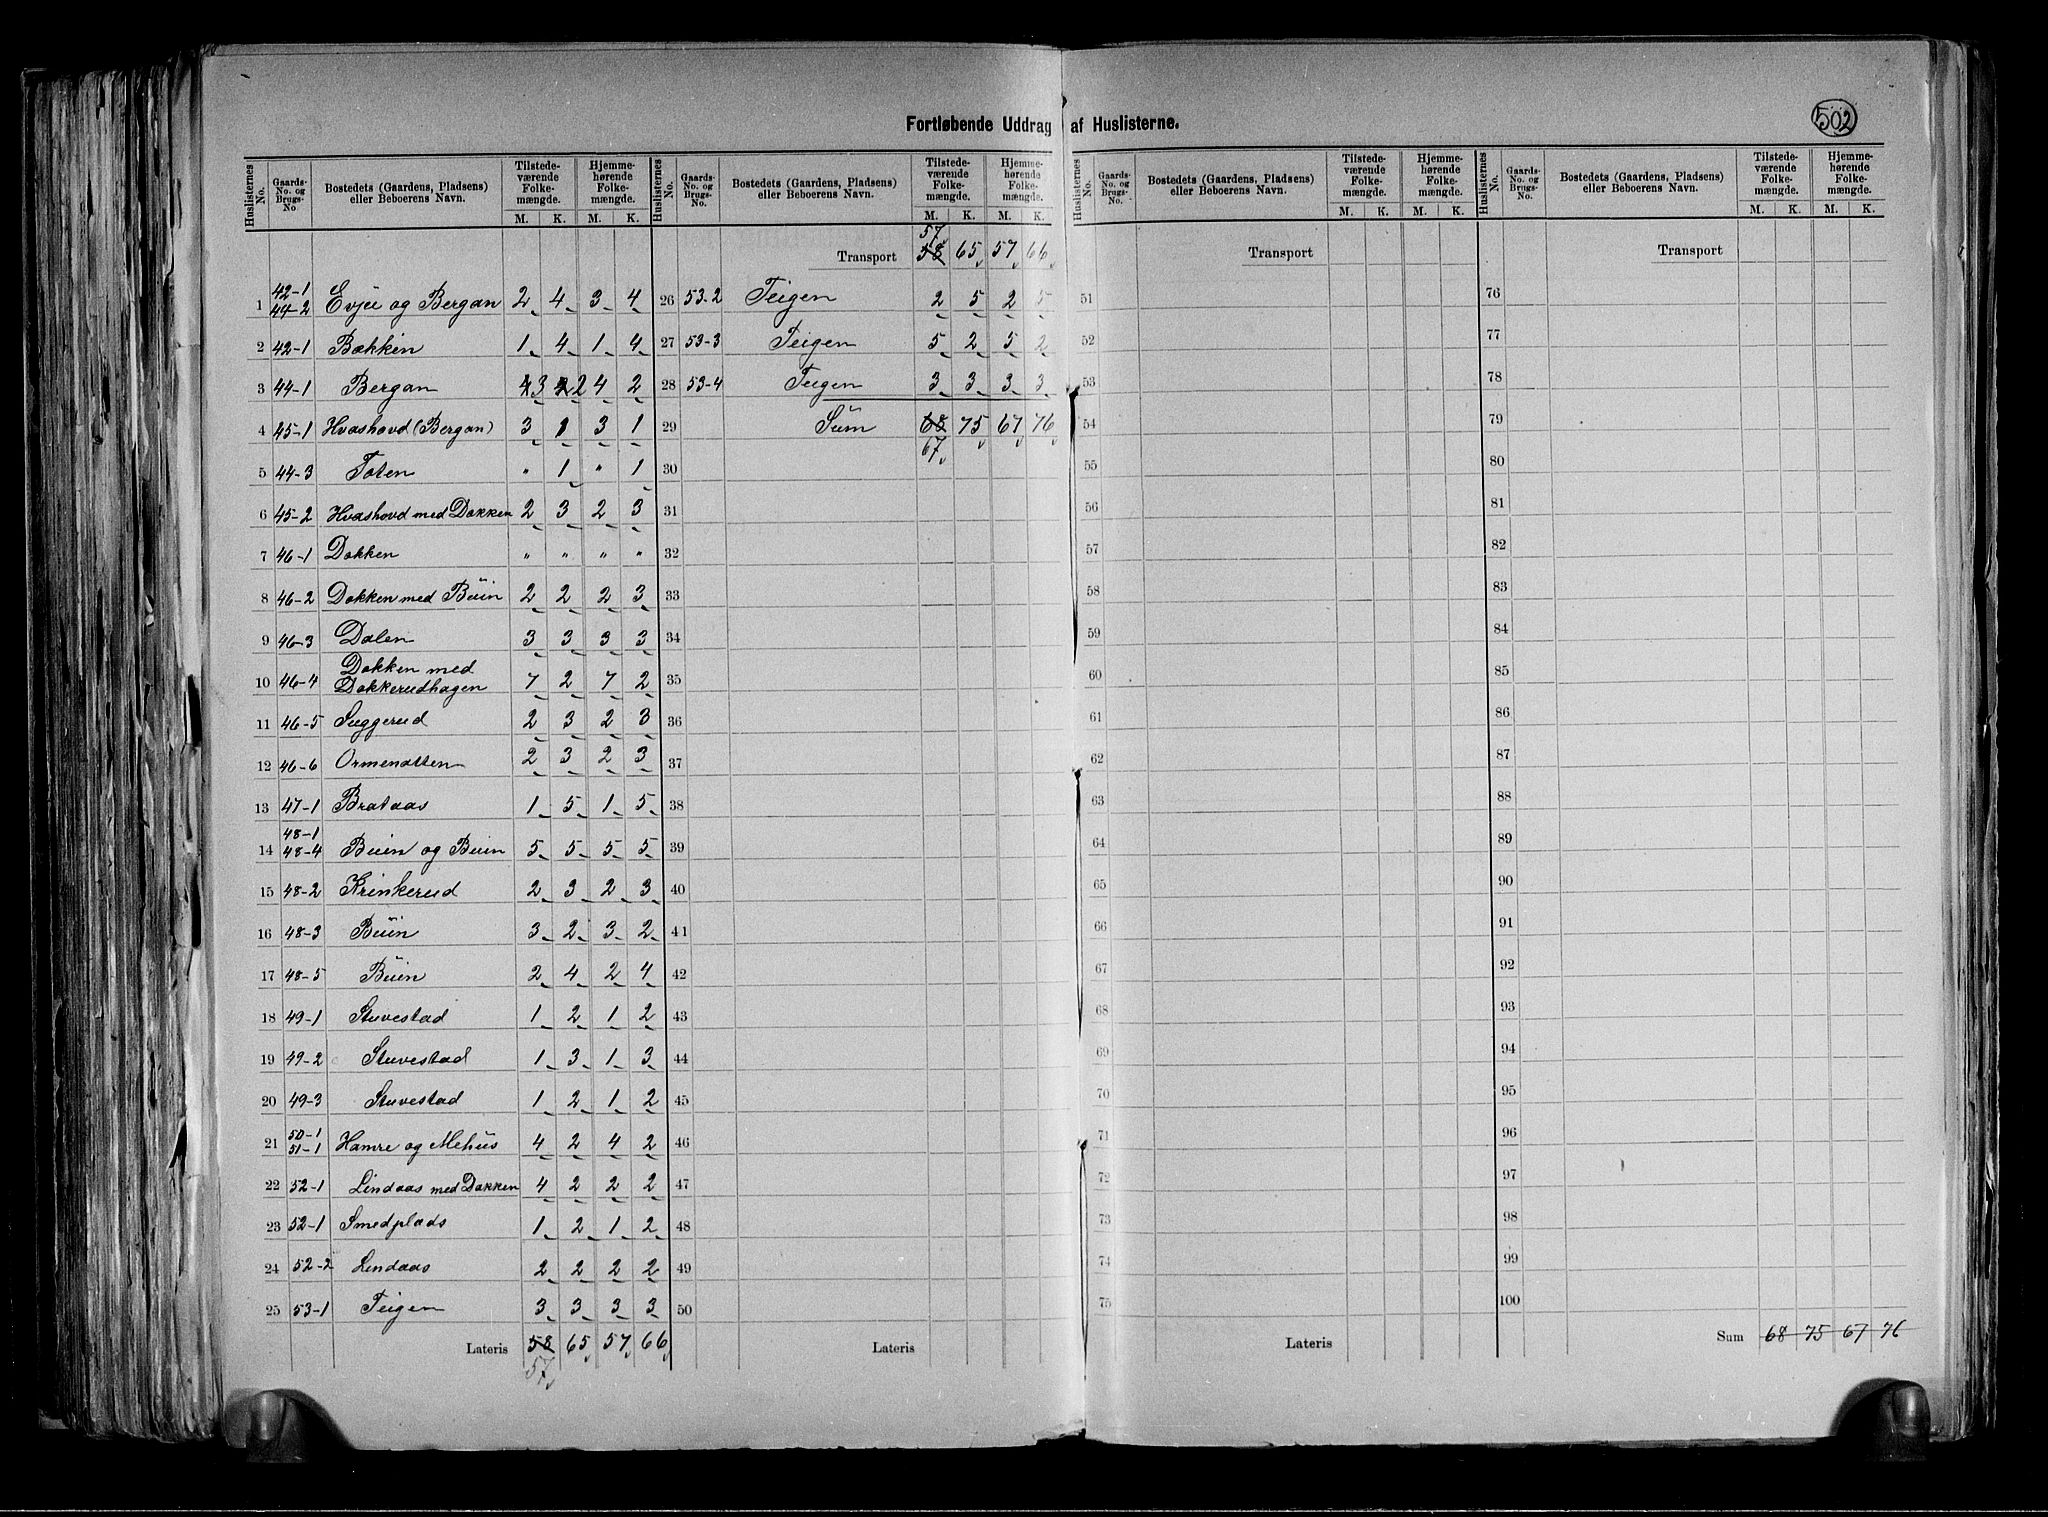 502
Fortløbende Uddrag af Huslisterne.
Huslisternes No. | Gaards-No. og Brugs-No. | Bostedets (Gaardens, Pladsens) eller Beboerens Navn. | Tilstedeværende Folkemængde. M. K. | Hjemmehørende Folkemængde. M. K.
1 | 42-1 44-2 | Evju og Bergan | 2 | 4 | 3 | 4
2 | 42-1 | Bakken | 1 | 4 | 1 | 4
3 | 44-1 | Bergan | 4 3 | 2 | 4 | 2
4 | 45-1 | Hvashovd (Bergan) | 3 | 1 | 3 | 1
5 | 44-3 | Toten | " | 1 | " | 1
6 | 45-2 | Hvashovd med Dokken | 2 | 3 | 2 | 3
7 | 46-1 | Dokken | " | " | " | "
8 | 46-2 | Dokken med Buin | 2 | 2 | 2 | 3
9 | 46-3 | Dalen | 3 | 3 | 3 | 3
10 | 46-4 | Dokken med Dokkerudhagen | 7 | 2 | 7 | 2
11 | 46-5 | Suggerud | 2 | 3 | 2 | 3
12 | 46-6 | Ormenatten | 2 | 3 | 2 | 3
13 | 47-1 | Brataas | 1 | 5 | 1 | 5
14 | 48-1 48-4 | Buin og Buin | 5 | 5 | 5 | 5
15 | 48-2 | Krinkerud | 2 | 3 | 2 | 3
16 | 48-3 | Buin | 3 | 2 | 3 | 2
17 | 48-5 | Buin | 2 | 4 | 2 | 4
18 | 49-1 | Stuvestad | 1 | 2 | 1 | 2
19 | 49-2 | Stuvestad | 1 | 3 | 1 | 3
20 | 49-3 | Stuvestad | 1 | 2 | 1 | 2
21 | 50-1 51-1 | Hamre og Mehus | 4 | 2 | 4 | 2
22 | 52-1 | Lindaas med Dokken | 4 | 2 | 2 | 2
23 | 52-1 | Smedplads | 1 | 2 | 1 | 2
24 | 52-2 | Lindaas | 2 | 2 | 2 | 2
25 | 53-1 | Teigen | 3 | 3 | 3 | 3
Lateris | 58 | 65 | 57 | 66
57
Huslisternes No. | Gaards-No. og Brugs-No. | Bostedets (Gaardens, Pladsens) eller Beboerens Navn. | Tilstedeværende Folkemængde. M. K. | Hjemmehørende Folkemængde. M. K.
57
Transport | 58 | 65 | 57 | 66
26 | 53-2 | Teigen | 2 | 5 | 2 | 5
27 | 53-3 | Teigen | 5 | 2 | 5 | 2
28 | 53-4 | Teigen | 3 | 3 | 3 | 3
29 | Sum | 68 | 75 | 67 | 76
67
30
31
32
33
34
35
36
37
38
39
40
41
42
43
44
45
46
47
48
49
50
Lateris
Huslisternes No. | Gaards-No. og Brugs-No. | Bostedets (Gaardens, Pladsens) eller Beboerens Navn. | Tilstedeværende Folkemængde. M. K. | Hjemmehørende Folkemængde. M. K.
Transport
51
52
53
54
55
56
57
58
59
60
61
62
63
64
65
66
67
68
69
70
71
72
73
74
75
Lateris
Huslisternes No. | Gaards-No. og Brugs-No. | Bostedets (Gaardens, Pladsens) eller Beboerens Navn. | Tilstedeværende Folkemængde. M. K. | Hjemmehørende Folkemængde. M. K.
Transport
76
77
78
79
80
81
82
83
84
85
86
87
88
89
90
91
92
93
94
95
96
97
98
99
100
Sum | 68 | 75 | 67 | 76